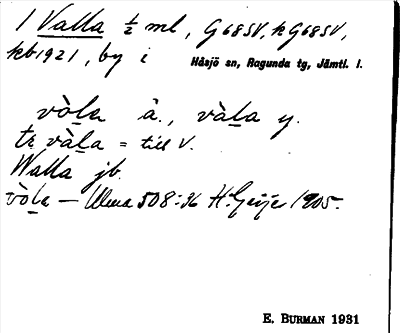 1 Valla ½ ml, G68SV, kG68SV,
kb1921, by i Håsjö sn, Ragunda tg, Jämtl. l.
vòla ä., vàla y.
tε vàla = till V.
Walla jb.
vòla — Ulma 508:36 H. Geijer 1905.
E. BURMAN 1931